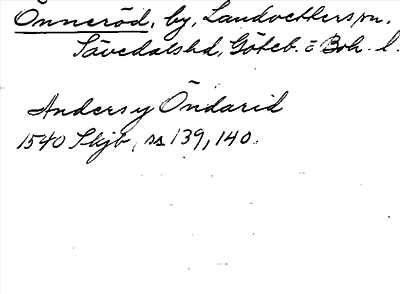 Önneröd, by, Landvetters sn.
Sävedalshd, Göteb. o Boh. l.
Anders y Öndarid
1540 Skjb, ss 139, 140.